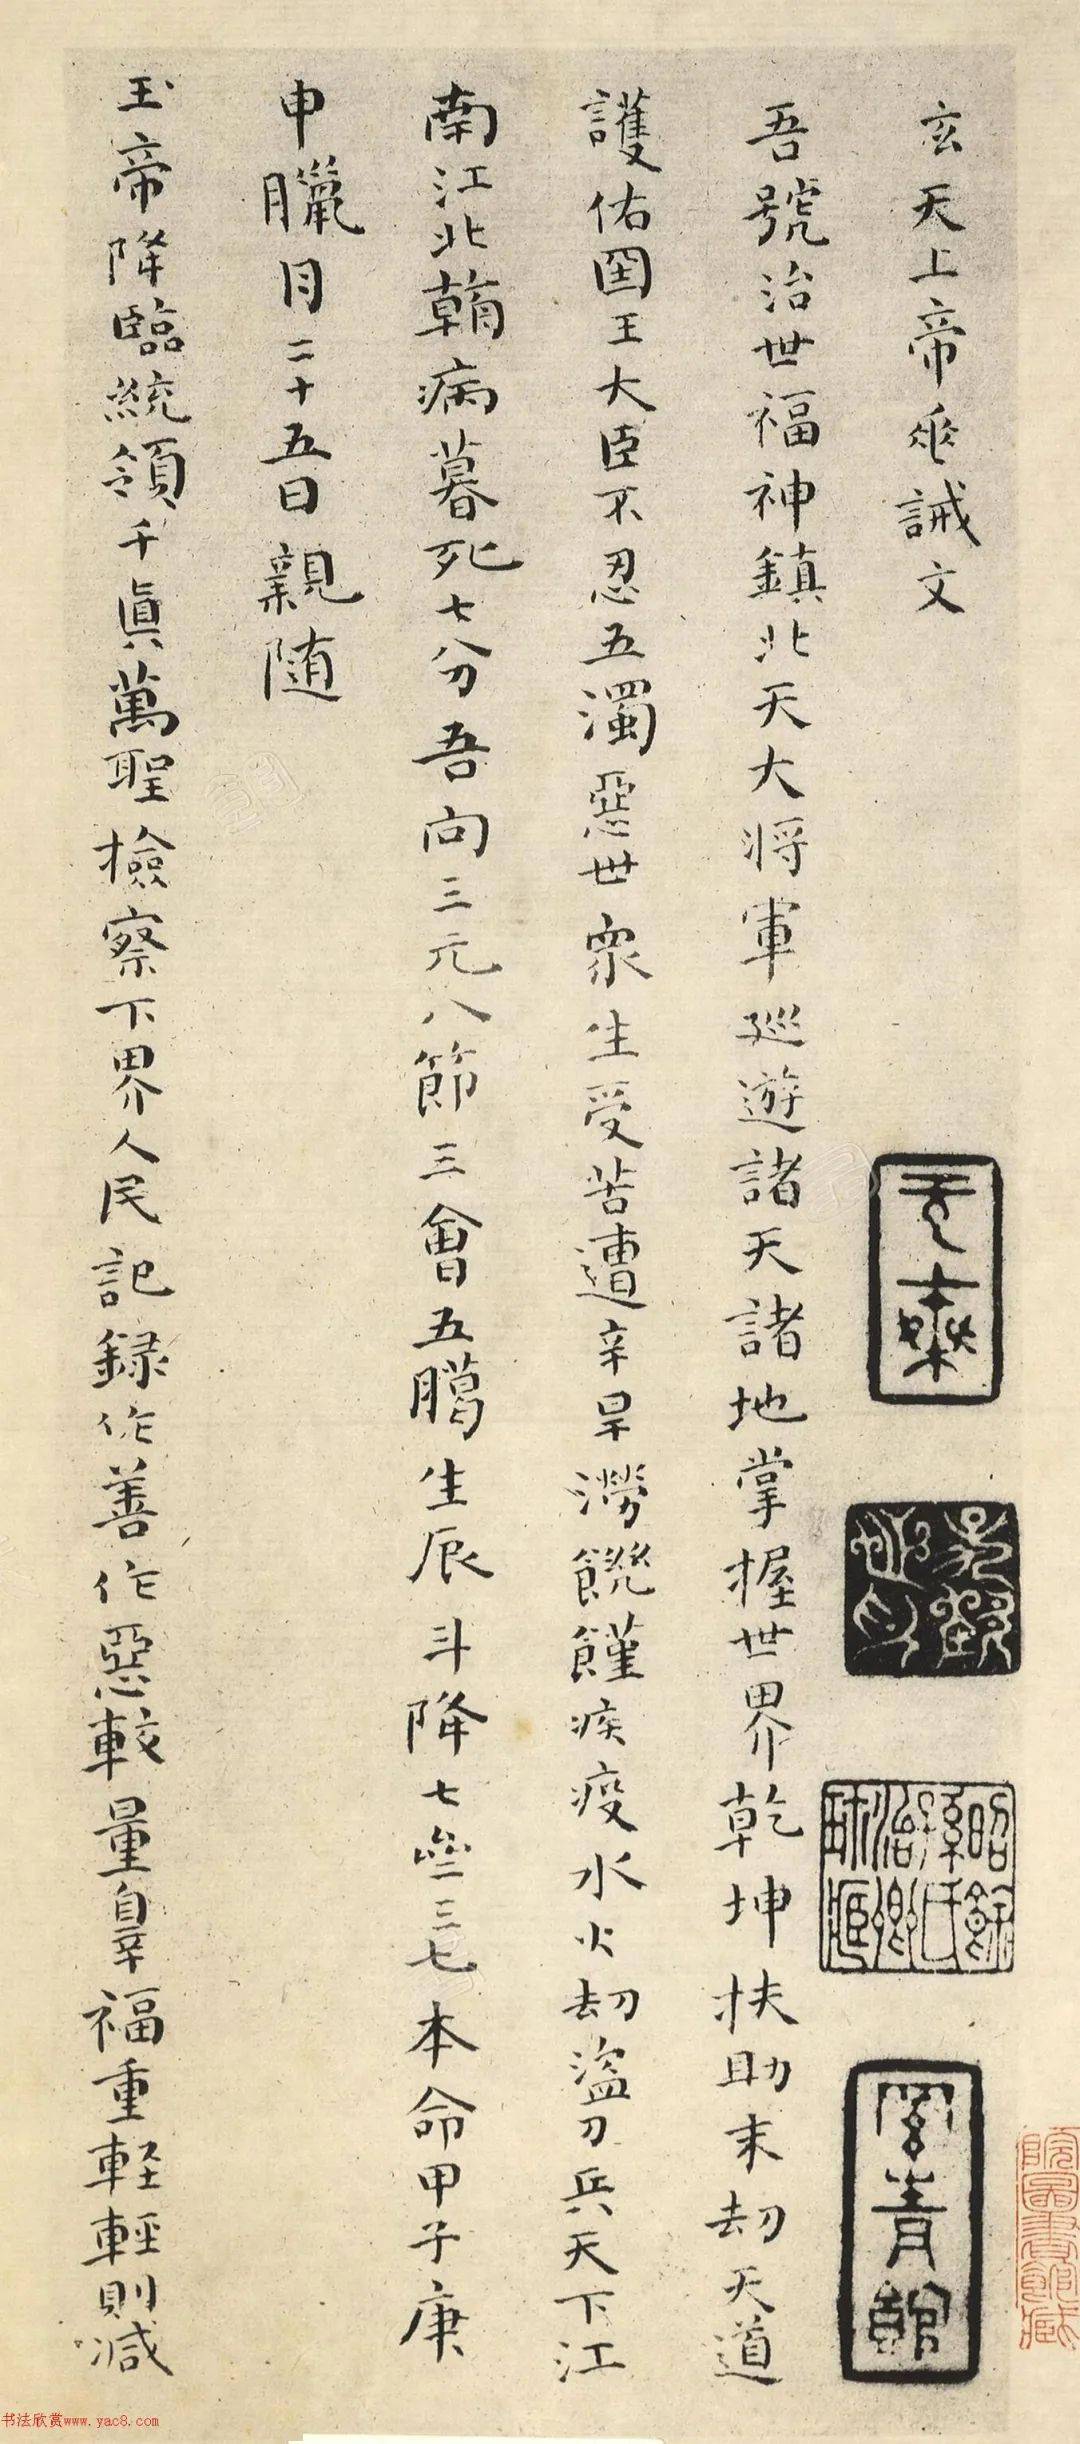 玄天上帝垂誡文
吾號治世福神鎮北天大将軍廵遊諸天諸地掌握世界乾坤扶助末劫天道
護佑国王大臣不忍五濁惡世衆生受苦遭辛旱澇饑饉疾疫水火劫盜刀兵天下江
南江北朝病暮死七分吾向三元八節三會五臈生辰斗降七壘三七本命甲子庚
申臘月二十五日親随
玉帝降臨統領千眞萬聖檢察下界人民記録作善作惡較量辠福重軽輕則减
昭餘孫氏治卿珎藏
雪青館
院圖書館藏
书法欣赏www.yac8.com